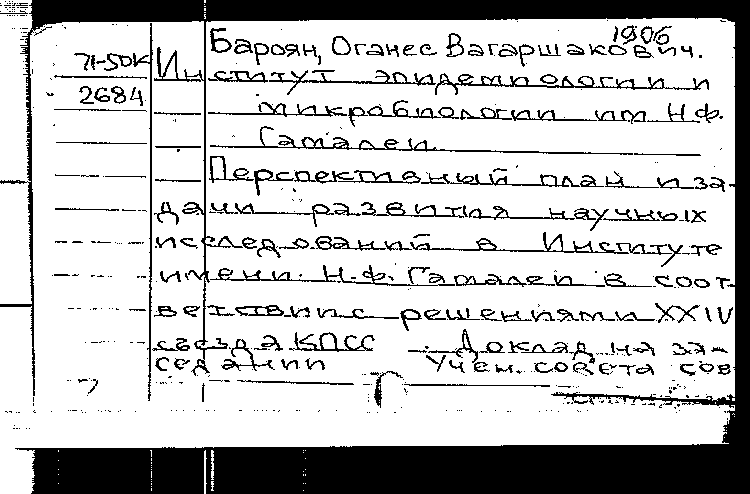 1906
Бароян, Оганес Вагаршакович.
71-50К
Институт эпидемиологии и
2684
микробиологии им Н.Ф.
Гамалеи.
Перспективный план и за-
дачи развития научных
исследований в Институте
имени. Н.Ф. Гамалеи в соот-
ветствии с решениями XXIV
съезда КПСС. Доклад на за-
седании Учен. совета сов